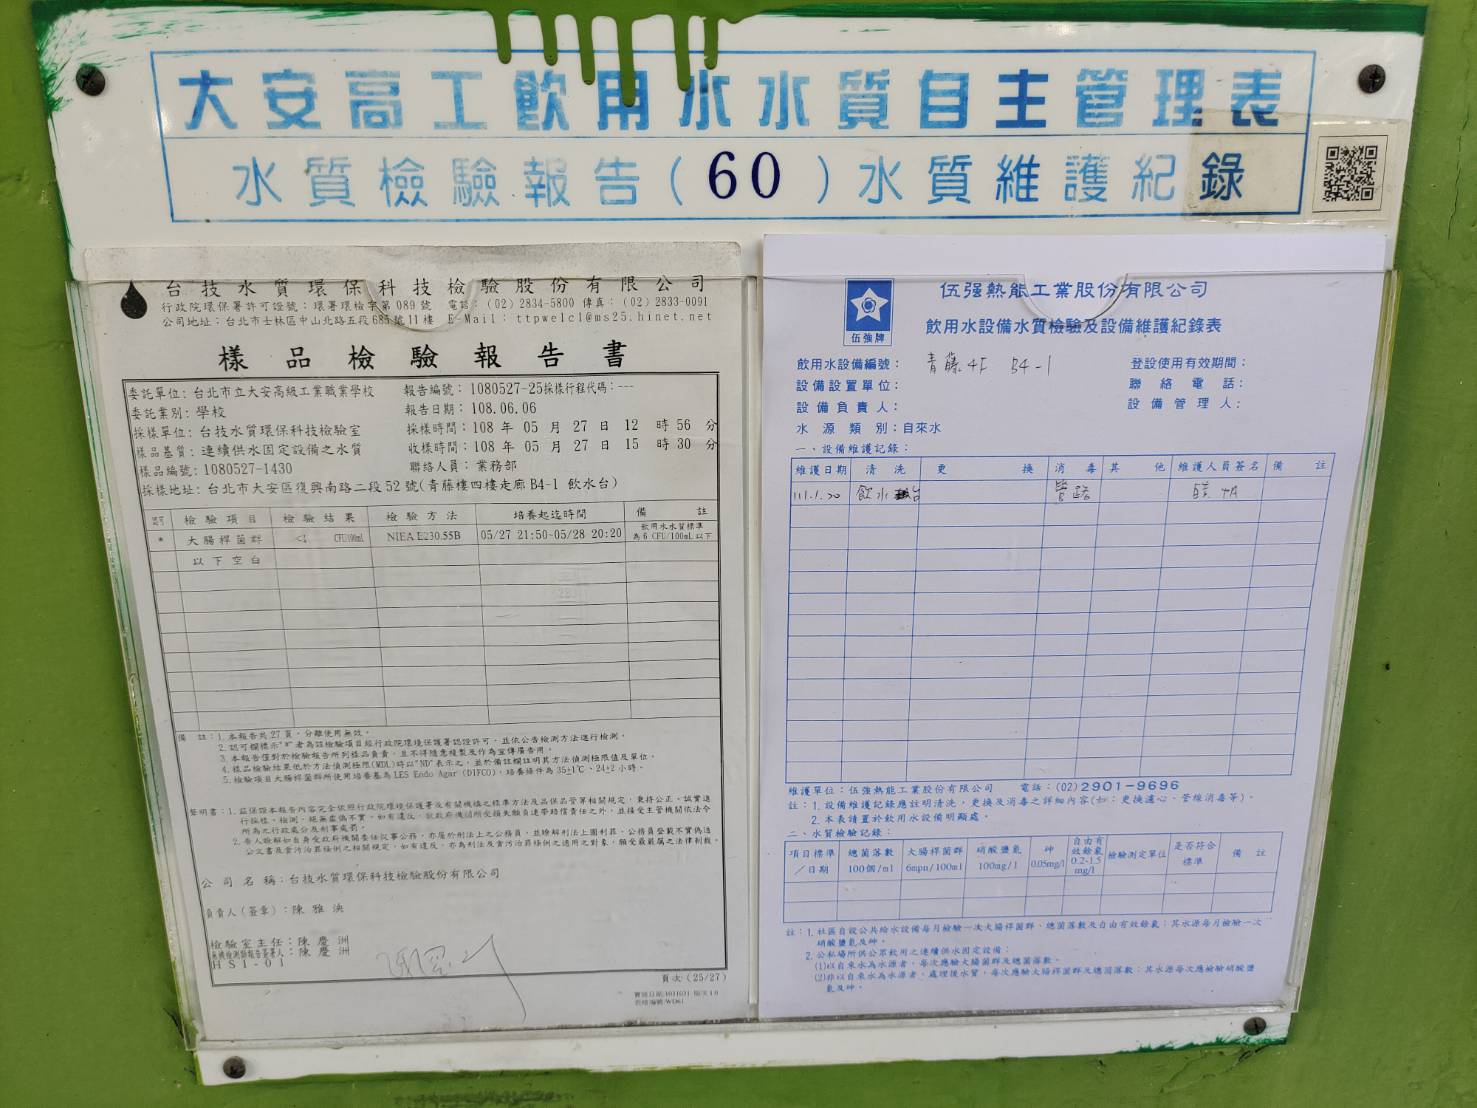 大安高工飲用水水質自主管理表
水質檢驗報告(60)水質維護紀錄
台技水質環保科技檢驗股份有限公司
行政院環保署許可證號：環署環檢字第089號 電話：(02)2834-5800 傳真：(02)2833-0091
公司地址：台北市士林區中山北路五段685號11樓 E-Mail：ttpwelcl@ms25.hinet.net
樣品檢驗報告書
委託單位：台北市立大安高級工業職業學校 報告編號：1080527-25採樣行程代碼：---
委託業別：學校 報告日期：108.06.06
採樣單位：台技水質環保科技檢驗室 採樣時間：108 年 05 月 27 日 12 時 56 分
樣品基質：連續供水固定設備之水質 收樣時間：108 年 05 月 27 日 15 時 30 分
樣品編號：1080527-1430 聯絡人員：業務部
採樣地址：台北市大安區復興南路二段52號(青藤樓四樓走廊B4-1 飲水台)
認可 檢驗項目 檢驗結果 檢驗方法 培養起迄時間 備註
* 大腸桿菌群 <1 CFU/100mL NIEA E230.55B 05/27 21:50~05/28 20:20 飲用水水質標準為6 CFU/100mL以下
以下空白
備註：1.本報告共27頁，分離使用無效。
2.認可欄標示"*"者為該檢驗項目經行政院環境保護署認證許可，並依公告檢測方法進行檢測。
3.本報告僅對於檢驗報告所列樣品負責，且不得隨意複製及作為宣傳廣告用。
4.樣品檢驗結果低於方法偵測極限(MDL)時以"ND"表示之，並於備註欄註明其方法偵測極限值及單位。
5.檢驗項目大腸桿菌群所使用培養基為LES Endo Agar (DIFCO)，培養條件為35±1℃、24±2小時。
聲明書：1.茲保證本報告內容完全依照行政院環境保護署及有關機構之標準方法及品保品管等相關規定，秉持公正、誠實進
行採樣、檢測，絕無虛偽不實，如有違反，就政府機關所受損失願負連帶賠償責任之外，並接受主管機關依法令
所為之行政處分及刑事處罰。
2.吾人瞭解如自身受政府機關委任從事公務，亦屬於刑法上之公務員，並瞭解刑法上圖利罪、公務員登載不實偽造
公文書及貪污治罪條例之相關規定，如有違反，亦為刑法及貪污治罪條例之適用之對象，願受最嚴厲之法律制裁。
公司名稱：台技水質環保科技檢驗股份有限公司
負責人(簽章)：陳雅泱
檢驗室主任：陳慶洲
無機檢測類報告簽署人：陳慶洲
HSI-01
頁次(25/27)
伍強牌
伍强熱能工業股份有限公司
飲用水設備水質檢驗及設備維護紀錄表
飲用水設備編號：青藤4F B4-1 登設使用有效期間：
設備設置單位： 聯絡電話：
設備負責人： 設備管理人：
水源類別：自來水
一、設備維護記錄：
維護日期 清洗 更換 消毒 其他 維護人員簽名 備註
111.1.20 飲水台 管路
維護單位：伍強熱能工業股份有限公司 電話：(02)2901-9696
註：1.設備維護記錄應註明清洗，更換及消毒之詳細內容(如：更換濾心、管線消毒等)。
2.本表請置於飲用水設備明顯處。
二、水質檢驗記錄：
項目標準／日期 總菌落數100個/ml 大腸桿菌群6mpn/100ml 硝酸鹽氮100mg/l 砷0.05mg/l 自由有效餘氯0.2-1.5mg/l 檢驗測定單位 是否符合標準 備註
註：1.社區自設公共給水設備每月檢驗一次大腸桿菌群、總菌落數及自由有效餘氯；其水源每月檢驗一次
硝酸鹽氮及砷。
2.公私場所供公眾飲用之連續供水固定設備：
(1)以自來水為水源者，每次應驗大腸菌群及總菌落數。
(2)非以自來水為水源者，處理後水質，每次應驗大腸桿菌群及總菌落數；其水源每次應檢驗硝酸鹽
氮及砷。